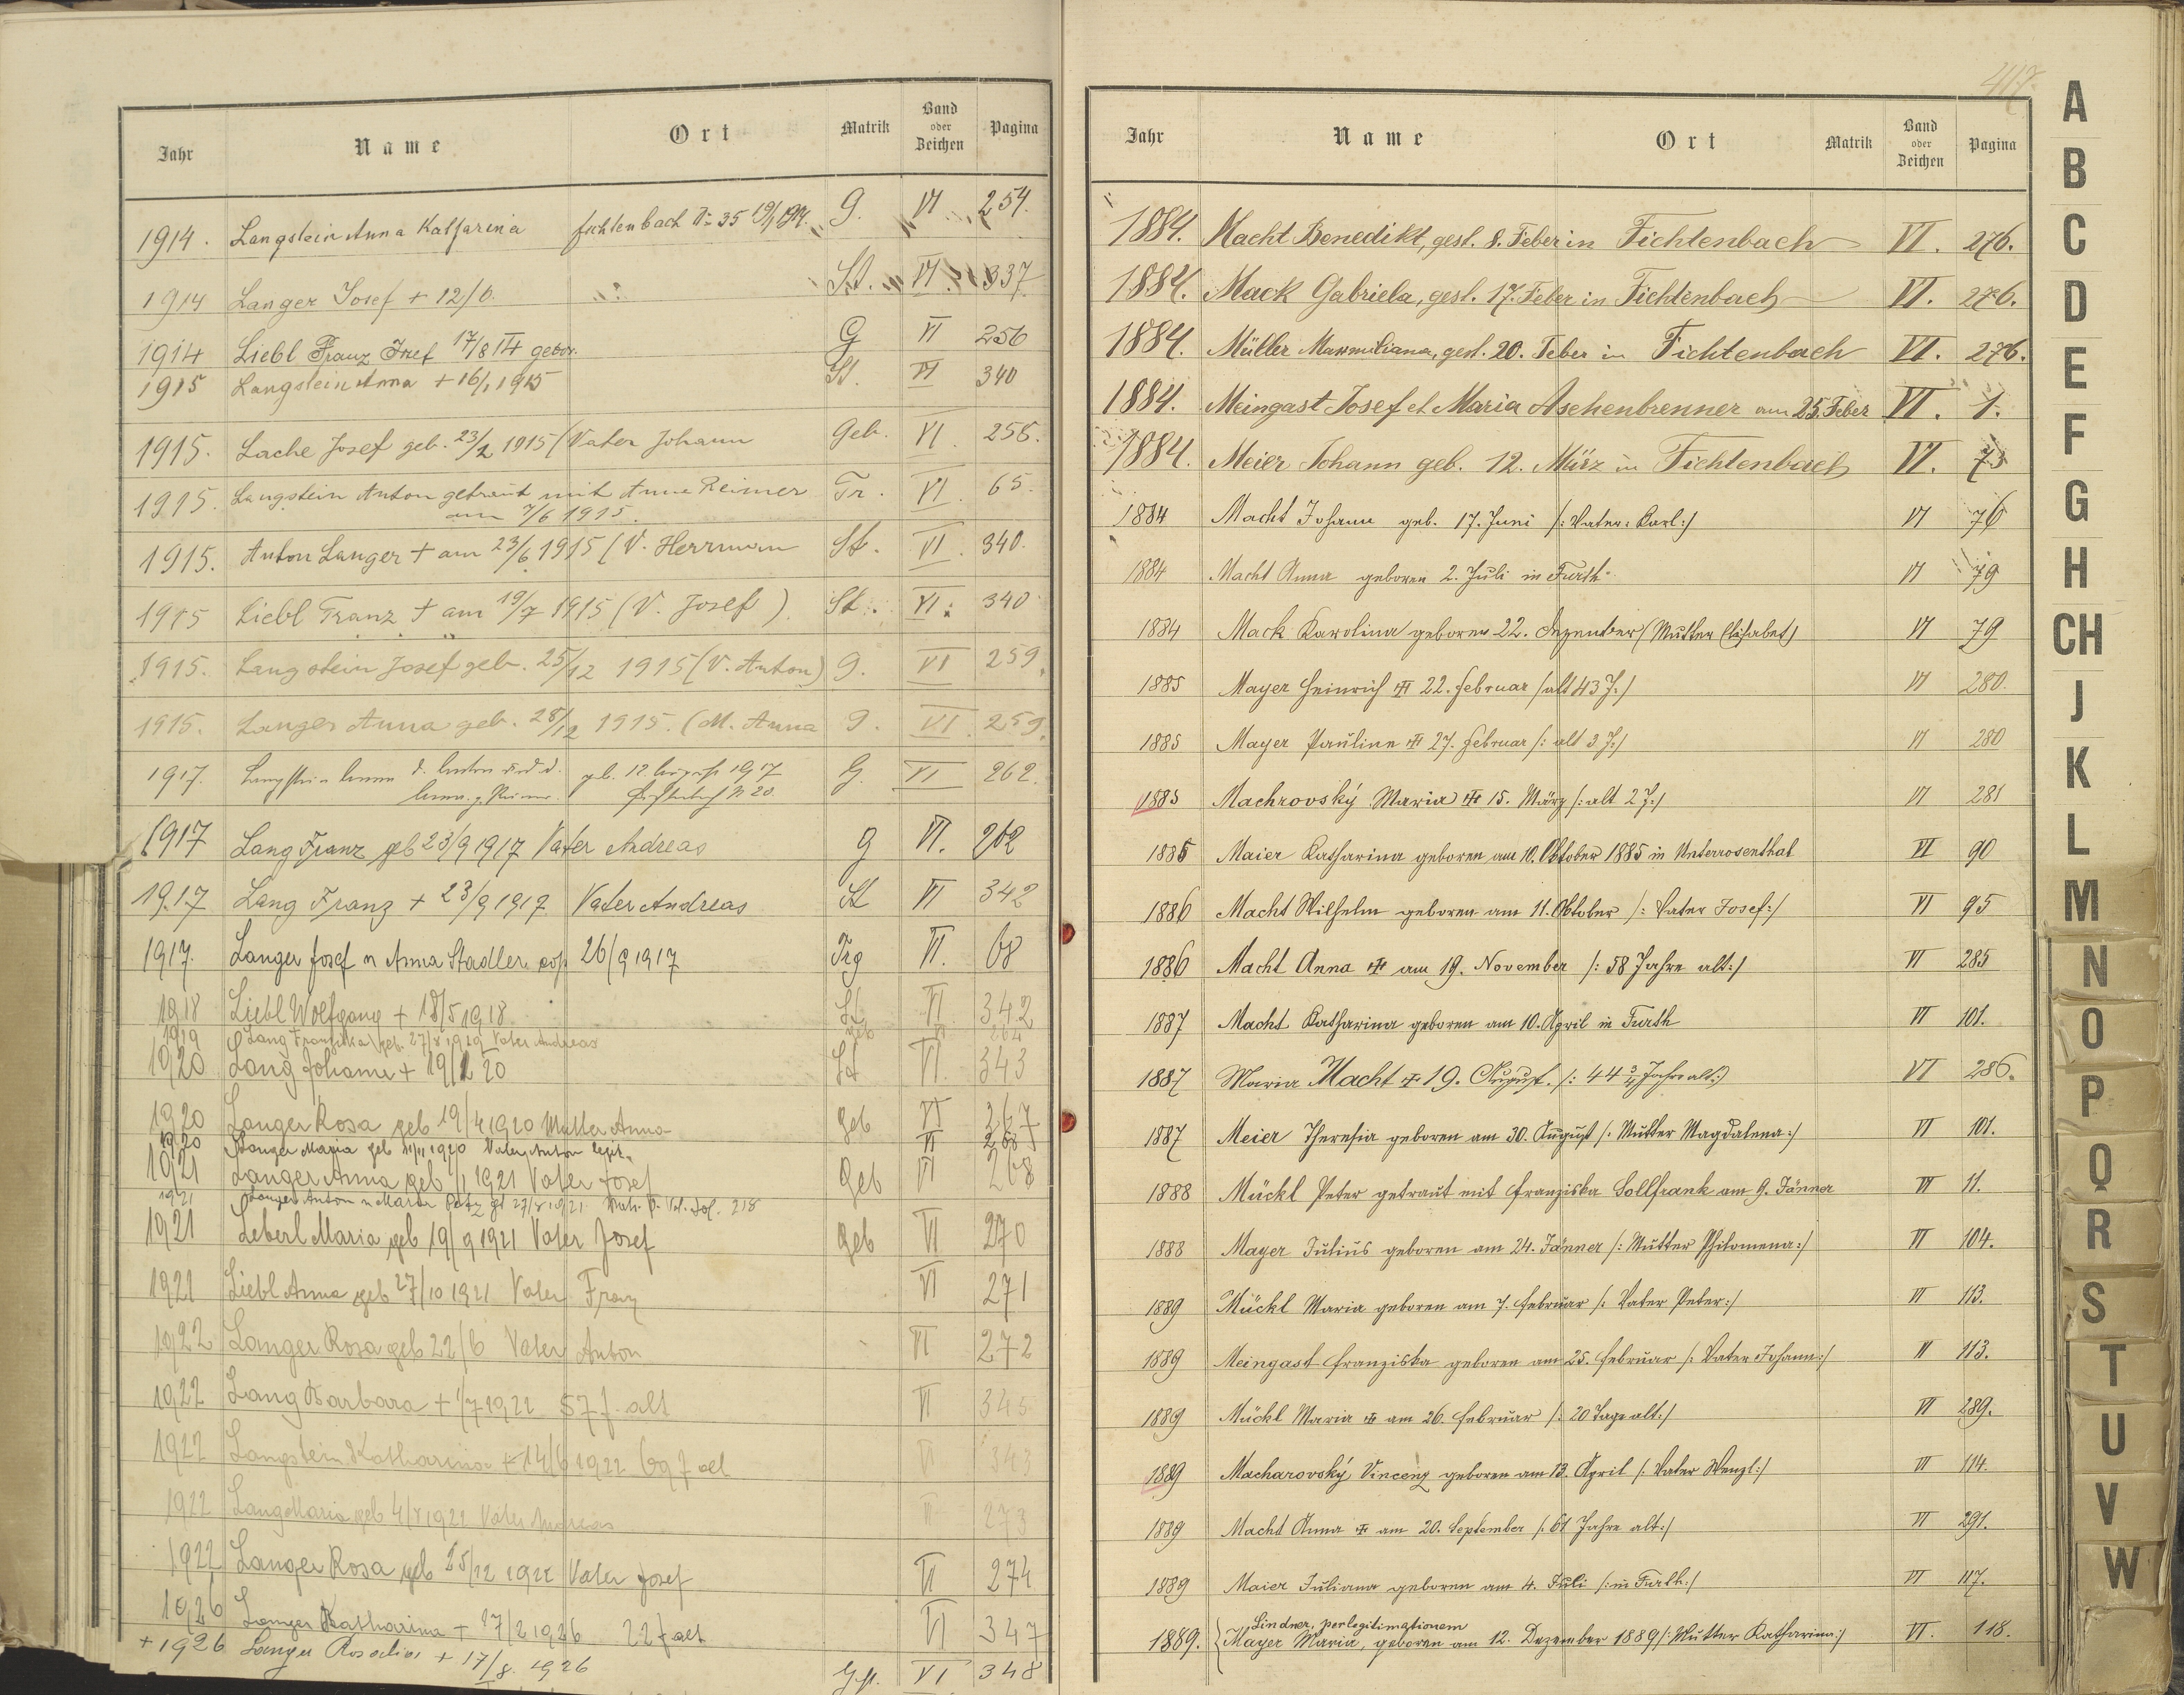 Jahr Name Ort Matrik Band oder Zeichen Pagina
1914. Langstein Anna Katharina Fichtenbach No 35 G. VI 254.
1914 Langer Josef + 12/6. St. VI. 337
1914 Liebl Franz Josef 17/8 14 gebor. G VI 256
1915 Langstein Anna + 16/1 1915 St. VI 340
1915. Lache Josef geb. 23/2 1915 (Vater Johann Geb. VI. 258.
1915. Langstein Anton getraut mit Anna Reimer Tr. VI. 65.
am 7/6 1915.
1915. Anton Langer + am 23/6 1915 (V. Herrmann St. VI. 340.
1915 Liebl Franz + am 19/7 1915 (V. Josef). St. VI. 340
1915. Langstein Josef geb. 25/12 1915 (V. Anton) G. VI 259.
1915. Langer Anna geb. 28/12 1915. (M. Anna G. VI. 259.
1917. Langstein Anna geb. 12. August 1917 G. VI 262.
N 20.
1917 Lang Franz geb 23/9 1917 Vater Andreas G VI. 262
1917 Lang Franz + 23/9 1917 Vater Andreas St VI 342
1917. Langer Josef u Anna Stadler cop 26/9 1917 Trg VI. 68
1918 Liebl Wolfgang + 18/5 1918 St VI 342
1919 Lang Franziska geb. 27/8 1919 Vater Andreas geb VI 264
1920 Lang Johann + 19/1 20 St VI. 343
1920 Langer Rosa geb 19/4 1920 Mutter Anna Geb VI 267
1920 Langer Maria geb 21/11 1920 Vater Anton legit. VI 268
1921 Langer Anna geb 1/1 1921 Vater Josef Geb VI 268
1921 Langer Anton u Maria 27/8 1921 fol. 218
1921 Leberl Maria geb 19/9 1921 Vater Josef Geb VI 270
1921 Liebl Anna geb 27/10 1921 Vater Franz VI 271
1922 Langer Rosa geb 22/6 Vater Anton VI 272
1922 Lang Barbara + 1/7 1922 57 J. alt VI 345
1922 Langstein Katharina + 14/6 1922 69 J alt VI 343
1922 Lang Maria geb 4/8 1922 Vater Andreas VI 273
1922 Langer Rosa geb 25/12 1922 Vater Josef VI 274
1926 Langer Katharina + 17/2 1926 22 J alt VI 347
+ 1926 Langer Rosalia + 17/8. 1926 Gst. VI 348
417.
Jahr Name Ort Matrik Band oder Zeichen Pagina
1884. Macht Benedikt, gest. 8. Feber in Fichtenbach VI. 276.
1884. Mack Gabriela, gest. 17. Feber in Fichtenbach VI. 276.
1884. Müller Maxmiliana, gest. 20. Feber in Fichtenbach VI. 276.
1884. Meingast Josef et Maria Aschenbrenner am 25. Feber VI. 1.
1884. Meier Johann geb. 12. März in Fichtenbach VI. 73
1884 Macht Johann geb. 17. Juni /: Vater: Karl :/ VI 76
1884 Macht Anna geboren 2. Juli in Furth VI 79
1884 Mack Karolina geboren 22. Dezember (Mutter Elisabet) VI 79
1885 Mayer Heinrich + 22. Februar /alt 43 J:/ VI 280.
1885 Mayer Pauline + 27. Februar /: alt 3 J:/ VI 280
1885 Machrovský Maria + 15. März /: alt 2 J:/ VI 281
1885 Maier Katharina geboren am 10. Oktober 1885 in Unterrosenthal VI 90
1886 Macht Wilhelm geboren am 11. Oktober /: Vater Josef:/ VI 95
1886 Macht Anna + am 19. November /: 58 Jahre alt:/ VI 285
1887 Macht Katharina geboren am 10. April in Furth VI 101.
1887 Maria Macht + 19. August. /: 44 3/4 Jahre alt:) VI 286.
1887 Meier Theresia geboren am 30. August /: Mutter Magdalena:/ VI 101.
1888 Mückl Peter getraut mit Franziska Sollfrank am 9. Jänner VI 11.
1888 Mayer Julius geboren am 24. Jänner /: Mutter Philomena:/ VI 104.
1889 Mückl Maria geboren am 7. Februar /: Vater Peter:/ VI 113.
1889 Meingast Franziska geboren am 25. Februar /: Vater Johann:/ VI 113.
1889 Mückl Maria + am 26. Februar /: 20 Tage alt:/ VI 289.
1889 Macharovský Vincenz geboren am 13. April /: Vater Wenzl:/ VI 114.
1889 Macht Anna + am 20. September /: 61 Jahre alt:/ VI 291.
1889 Maier Juliana geboren am 4. Juli /: in Furth:/ VI 117.
Lindner, per legitimationem
1889. Mayer Maria, geboren am 12. Dezember 1889 /: Mutter Katharina:/ VI. 118.
A
B
C
D
E
F
G
H
CH
J
K
L
M
N
O
P
Q
R
S
T
U
V
W